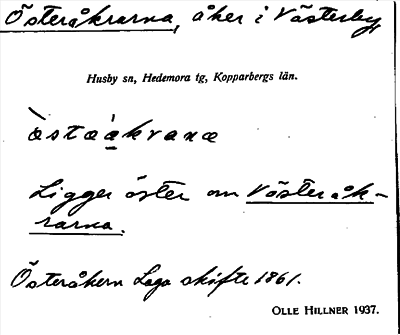 Österåkrarna, åker i Västerby,
Husby sn, Hedemora tg, Kopparbergs län.
Ligger öster om Västeråk-
rarna.
Österåkern Laga skifte 1861.
OLLE HILLNER 1937.